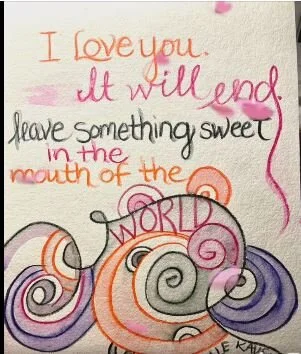 I love you.
It will end.
leave something sweet
in the
mouth of the
WORLD